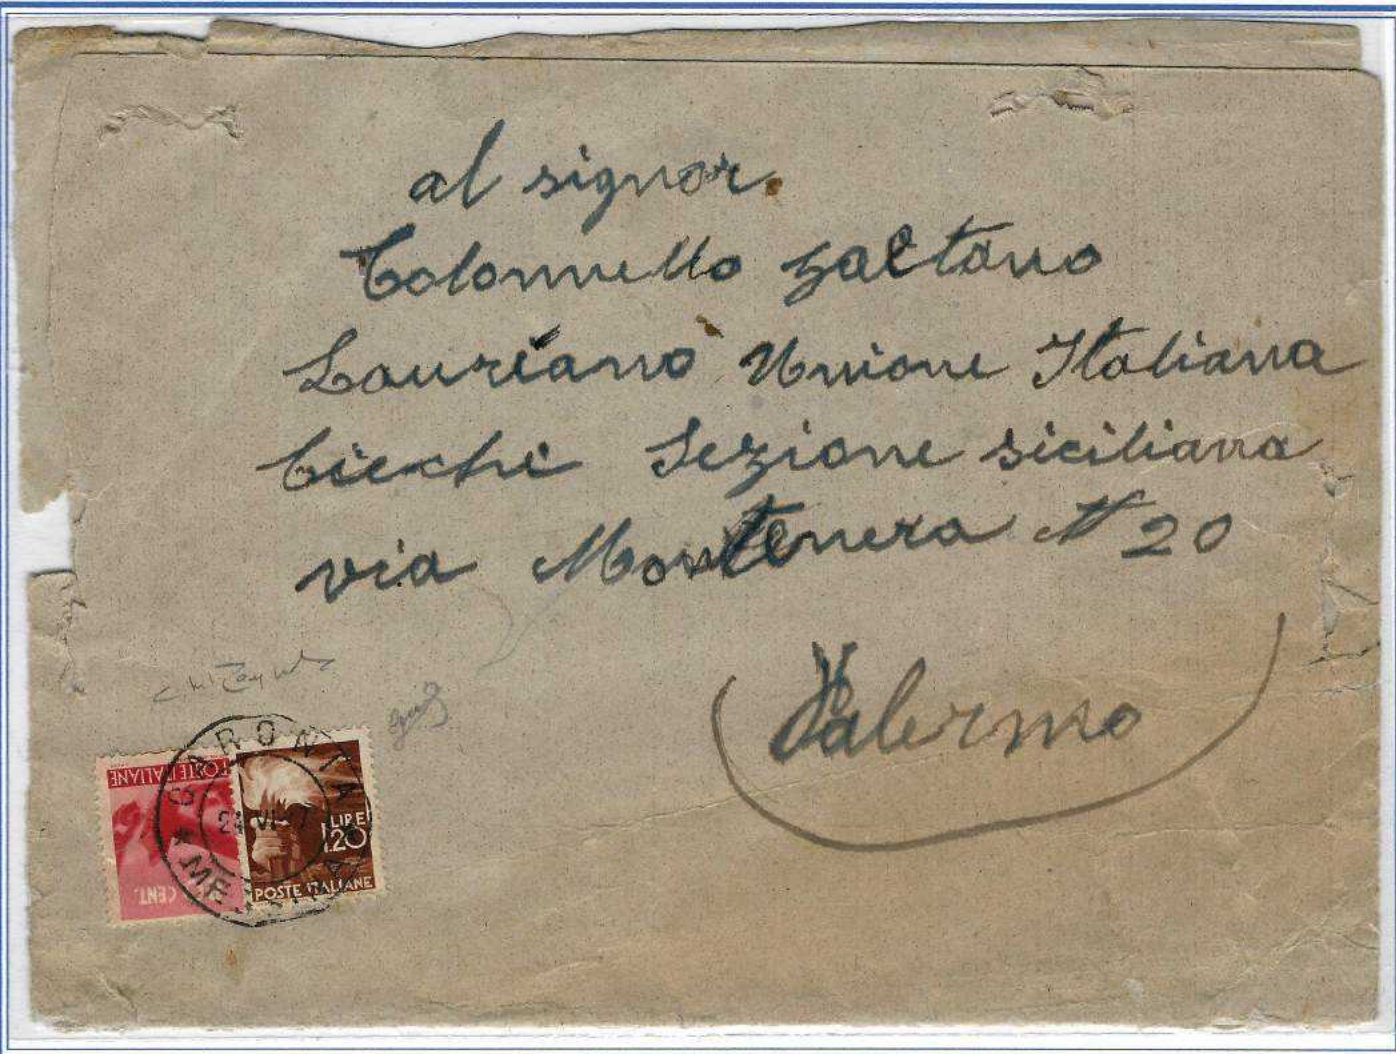 al signor.
Colonnello Gaetano
Lauriano Unione Italiana
Ciechi Sezione siciliana
via Montenera N 20
Palermo
POSTE ITALIANE
CENT.
LIRE
1.20
POSTE ITALIANE
BARONIA